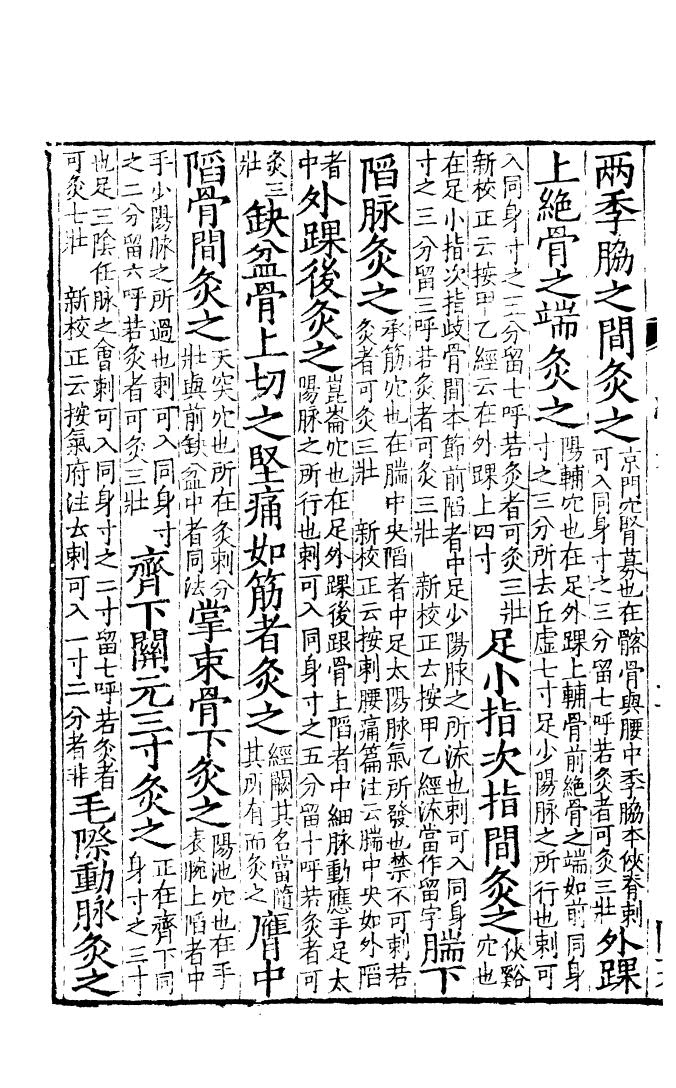 两季脇之間灸之京門穴腎募也在髂骨與腰中季脇本俠脊刺可入同身寸之三分留七呼若灸者可灸三壯外踝
上絶骨之端灸之陽輔穴也在足外踝上輔骨前絶骨之端如前同身寸之三分所去丘虛七寸足少陽脉之所行也刺可
入同身寸之三分留七呼若灸者可灸三壯新校正云按甲乙經云在外踝上四寸足小指次指間灸之俠谿穴也
在足小指次指歧骨間本節前陷者中足少陽脉之所流也刺可入同身寸之三分留三呼若灸者可灸三壯新校正云按甲乙經流當作留字腨下
陷脉灸之承筋穴也在腨中央陷者中足太陽脉氣所發也禁不可刺若灸者可灸三壯新校正云按刺腰痛篇注云腨中央如外陷
者中外踝後灸之崑崙穴也在足外踝後跟骨上陷者中細脉動應手足太陽脉之所行也刺可入同身寸之五分留十呼若灸者可
灸三壯缺盆骨上切之堅痛如筋者灸之經闕其名當隨其所有而灸之膺中
陷骨間灸之天突穴也所在灸刺分壯與前缺盆中者同法掌束骨下灸之陽池穴也在手表腕上陷者中
手少陽脉之所過也刺可入同身寸之二分留六呼若灸者可灸三壯齊下關元三寸灸之正在齊下同身寸之三寸
也足三陰任脉之會刺可入同身寸之二寸留七呼若灸者可灸七壯新校正云按氣府注云刺可入一寸二分者非毛際動脉灸之